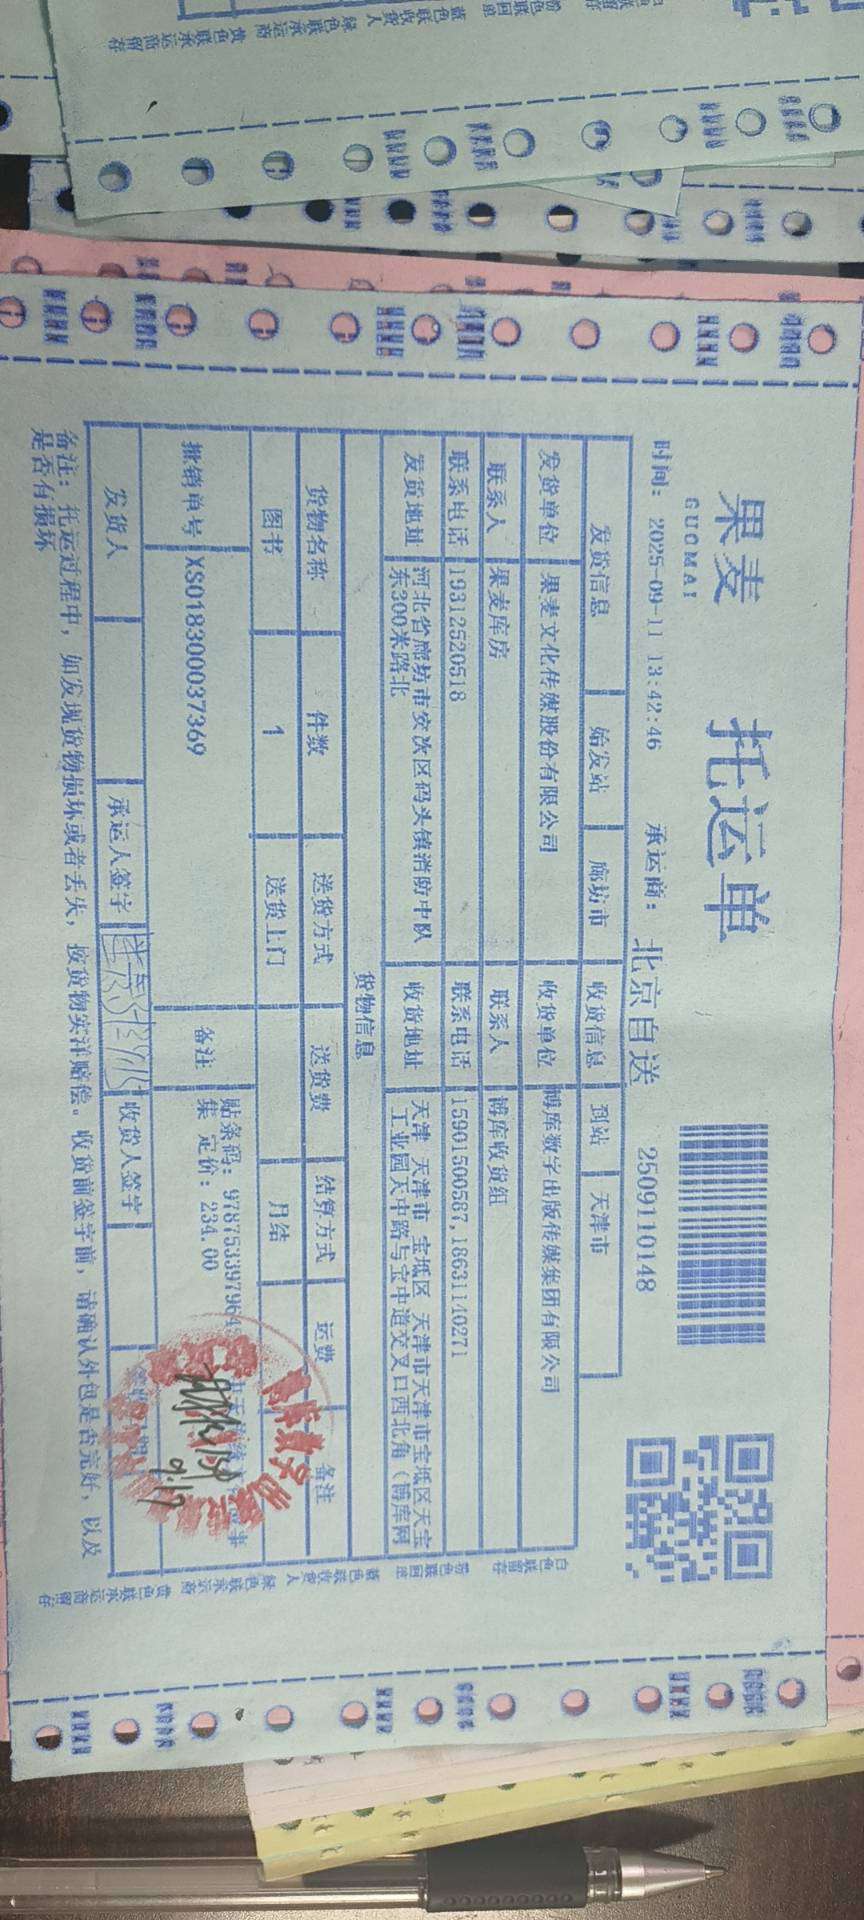 果麦 托运单
GUOMAI
时间: 2025-09-11 13:42:46 承运商: 北京自送 2509110148
发货信息 始发站 廊坊市 收货信息 到站 天津市
发货单位 果麦文化传媒股份有限公司 收货单位 博库数字出版传媒集团有限公司
联系人 果麦库房 联系人 博库收货组
联系电话 19312520518 联系电话 15901500587,18631140271
发货地址 河北省廊坊市安次区码头镇消防中队 收货地址 天津 天津市 宝坻区 天津市天津市宝坻区天宝
东300米路北 工业园天中路与宝中道交叉口西北角(博库网
货物信息
货物名称 件数 送货方式 送货费 结算方式 运费 备注
图书 1 送货上门 月结
批销单号 XS018300037369 备注 贴条码: 978753397964
集 定价: 234.00
发货人 承运人签字 收货人签字
9.17
备注: 托运过程中, 如发现货物损坏或者丢失, 按货物实洋赔偿。收货前签字前, 请确认外包是否完好, 以及
是否有损坏
白色联留存 粉色联回单 蓝色联收货人 绿色联承运商 黄色联承运商留存